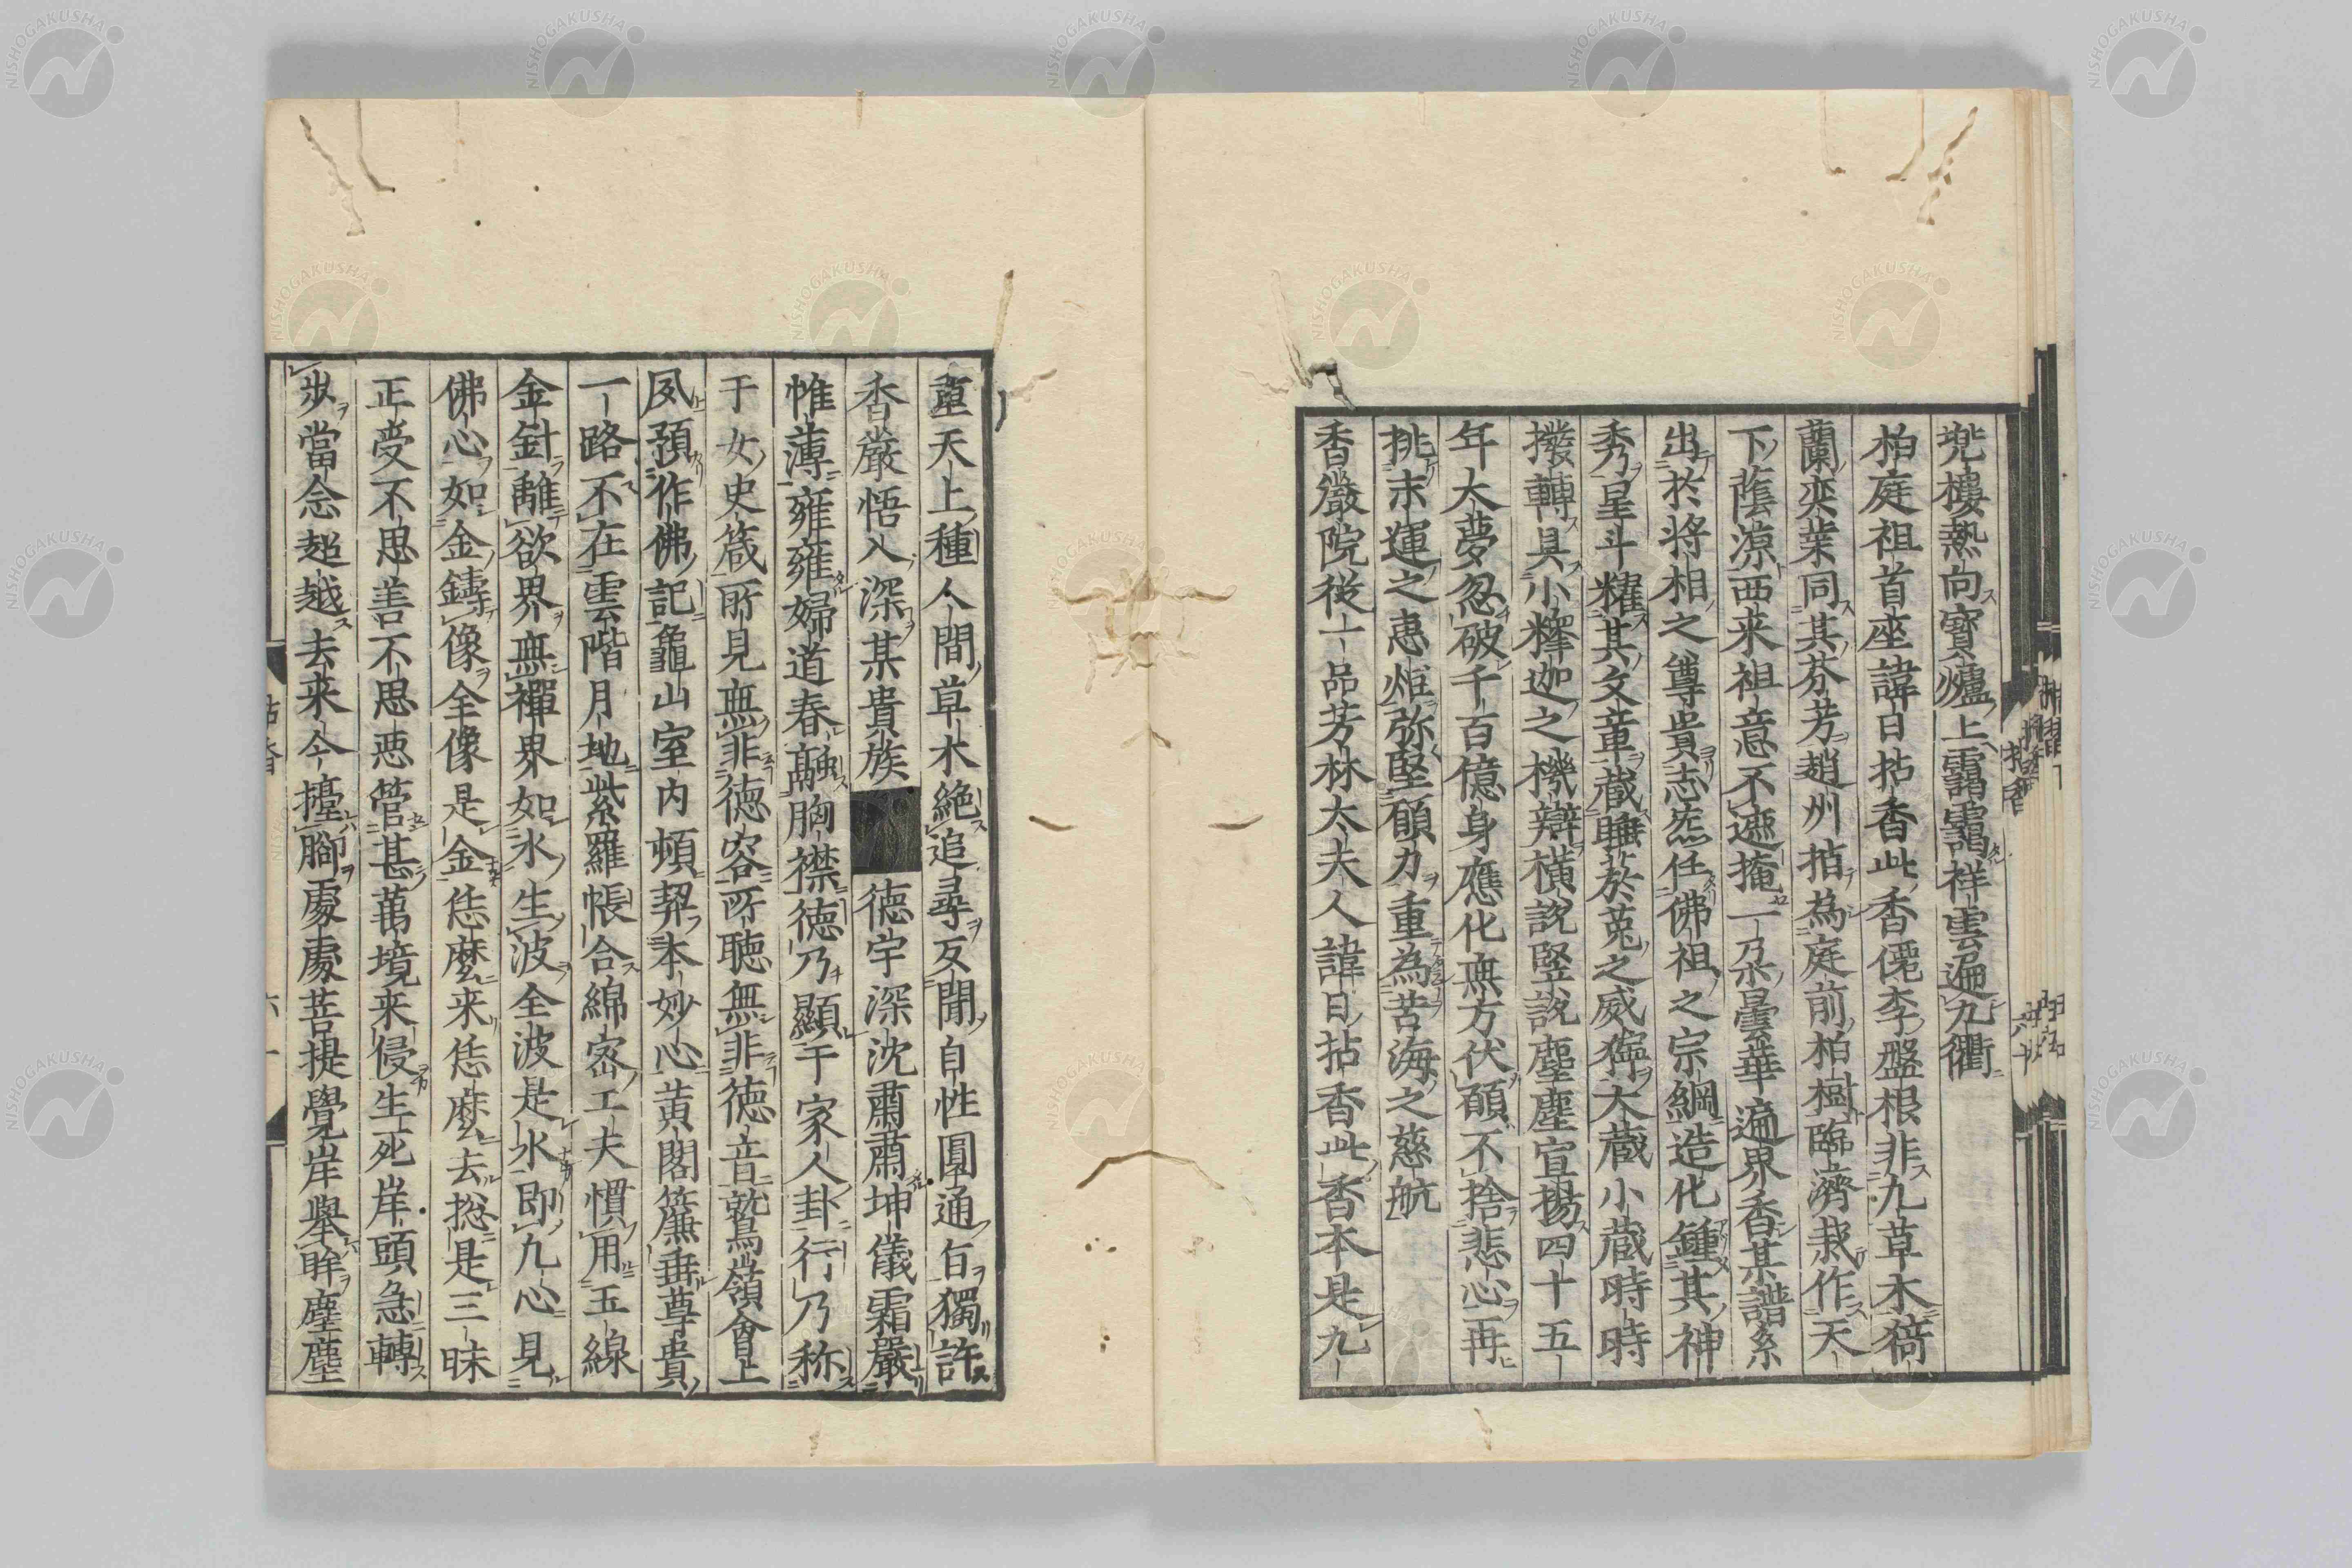 兜樓熱向寶爐上靄靄祥雲遍九衢
柏庭祖首座諱日拈香此香僊李盤根非九草木猗
蘭奕葉同其芬芳趙州拈為庭前柏樹臨濟栽作天
下蔭涼西来祖意不遮掩一朶曇華遍界香某譜系
出於將相之尊貴志烝任佛祖之宗綱造化鍾其神
秀星斗糴其文章藏睡於菟之威獰大藏小藏時時
撥轉具小釋迦之機辯橫說竪說塵塵宣揚四十五
年大夢忽破千百億身應化無方伏願不捨悲心再
挑末運之惠炬弥堅願力重為苦海之慈航
香嚴院從一品芳林太夫人諱日拈香此香本是九
重天上種人間草木絶追尋反聞自性圓通旨獨許
香嚴悟入深某貴族 德宇深沈肅肅坤儀霜嚴
帷薄雍雍婦道春融胸襟德乃顯于家人卦行乃称
于女史箴所見無非德容所聴無非德音鷲嶺會上
夙預作佛記龜山室内頓契本妙心黃閣簾垂尊貴
一路不在雲階月地紫羅帳合綿密工夫慣用玉線
金針離欲界無禪界如水生波全波是水即九心見
佛心如金鑄像全像是金恁麼来恁麼去捴是三昧
正受不思善不思惡管甚萬境来侵生死岸頭急轉
步當念超越去来今擡脚處處菩提覺岸舉眸塵塵
拈香